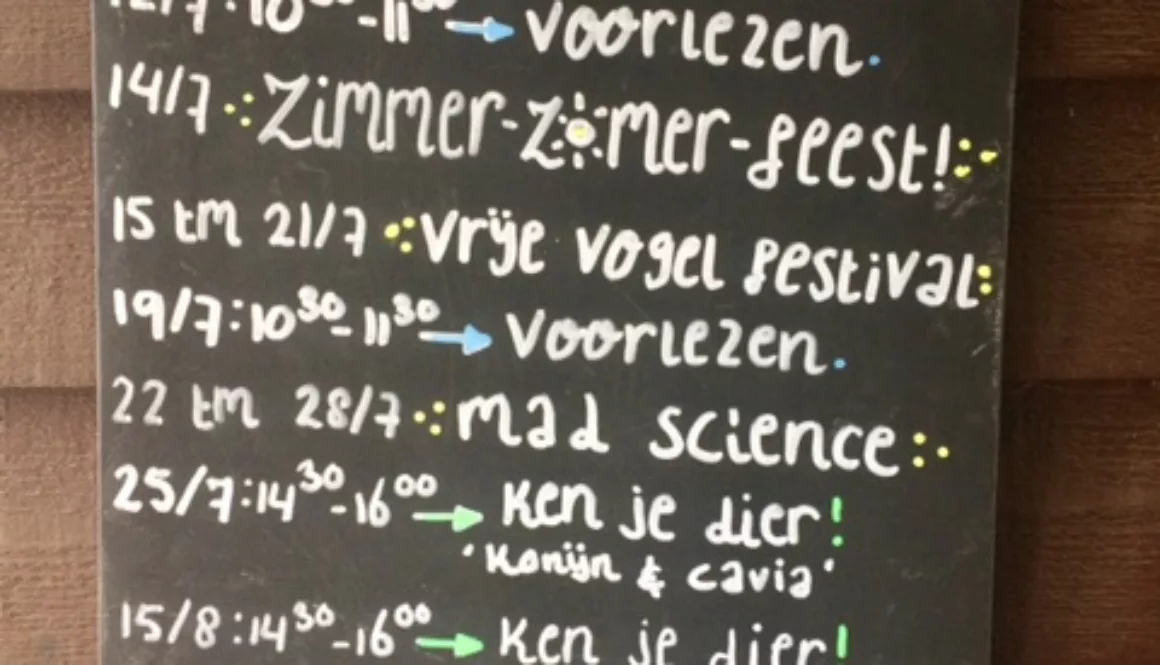 12/7: 10³⁰-11³⁰ → Voorlezen.
14/7 Zimmer-Zomer-feest!
15 tm 21/7 Vrije Vogel festival
19/7: 10³⁰-11³⁰ → Voorlezen.
22 tm 28/7 mad science
25/7: 14³⁰-16⁰⁰ → Ken je dier!
'Konijn & cavia'
15/8: 14³⁰-16⁰⁰ → Ken je dier!